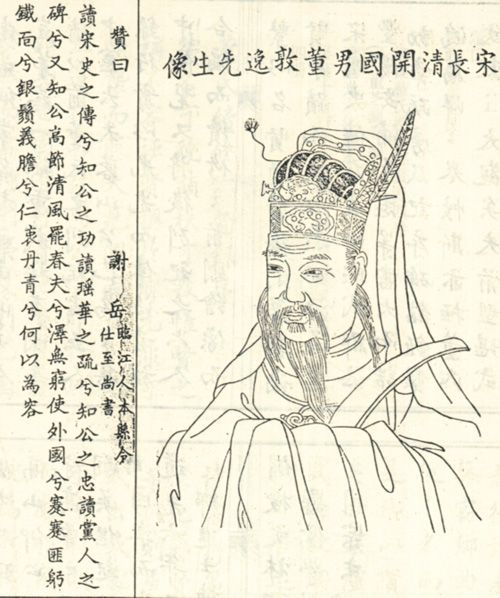 宋長清開國男董敦逸先生像
贊曰
謝岳臨江人本縣令仕至尚書
讀宋史之傳兮知公之功讀瑶華之疏兮知公之忠讀黨人之
碑兮又知公高節清風罷春夫兮澤無窮使外國兮蹇蹇匪躬
鐵面兮銀鬚義膽兮仁衷丹青兮何以為容